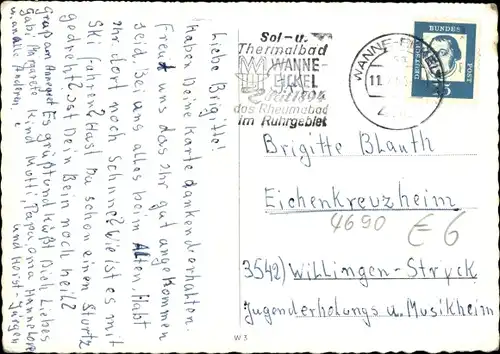 Liebe Brigitte!
Haben Deine Karte dankend erhalten.
Freut uns das ihr gut angekommen
seid. Bei uns alles beim Alten. Habt
ihr dort noch Schnee? Wie ist es mit
Ski fahren? Hast Du schon einen Sturtz
gedreht? Ist Dein Bein noch heil?
Es grüßt und küßt Dich Liebes
Kind Mutti, Papa, Oma, Hannelore
und Horst-Jürgen
Gruß an Annegret
Gabi, Margarete
u. an alle Anderen
Sol- u.
Thermalbad
WANNE-
EICKEL
das Rheumabad
im Ruhrgebiet
WANNE-EICKEL
11.
DEUTSCHE
BUNDES
POST
15
Brigitte Blauth
Eichenkreuzheim
4690
€ 6
3542) Willingen-Stryck
Jugenderholungs u. Musikheim
W 3